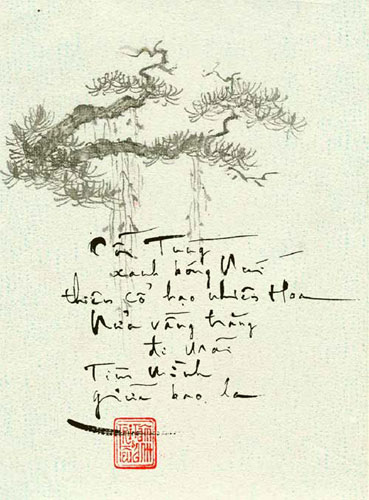 Tùng
xanh bóng Núi
thiên cổ hạo nhiên Hoa
Nửa vầng trăng
đi Mãi
Tìm Mình
giữa bao la